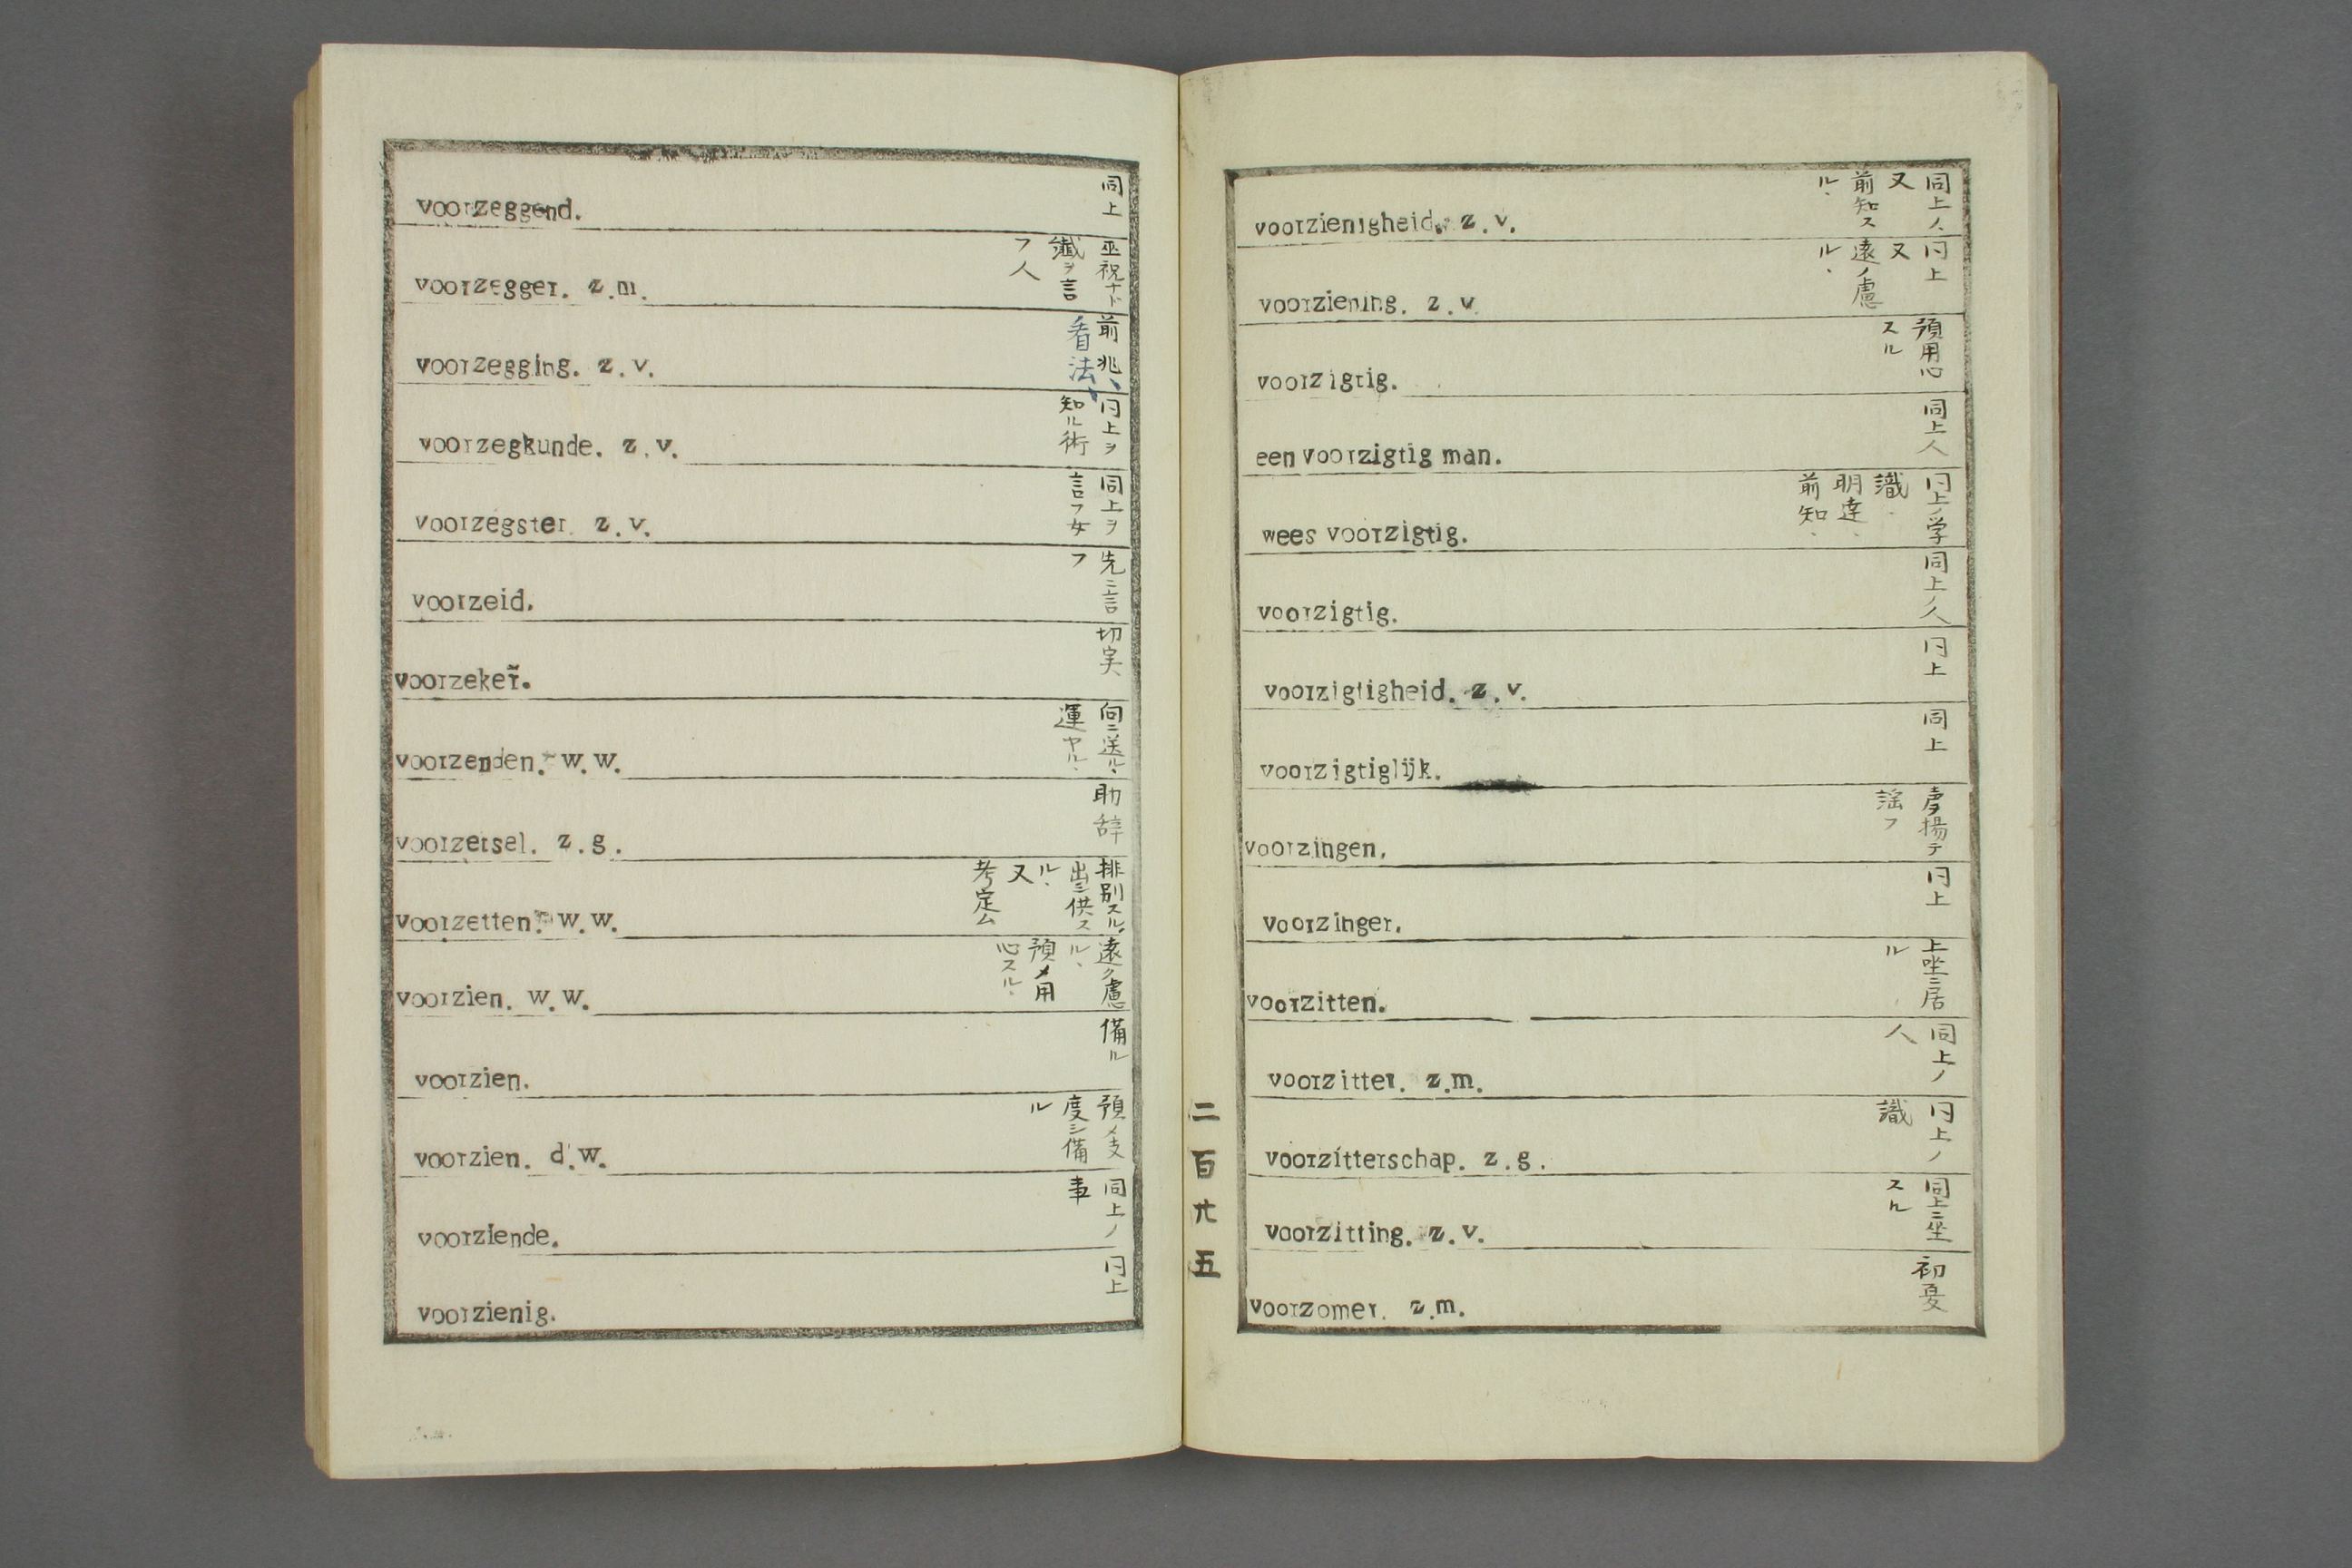 voorzeggend.
同上
voorzegger. z.m.
巫祝ナド
讖ヲ言
フ人
voorzegging. z.v.
前兆、
看法、
voorzegkunde. z.v.
冃上ヲ
知ル術
voorzegster. z.v.
同上ヲ
言フ女
voorzeid.
先ニ言
フ
voorzeker.
切実
voorzenden. w.w.
向ニ送ル、
運ヤル、
voorzetsel. z.g.
助辞
voorzetten. w.w.
排別スル、
出シ供ス
ル、
又
考定ム
voorzien. w.w.
遠ク慮
ル、
預メ用
心スル、
voorzien.
備ル
voorzien. d.w.
預メ支
度シ備
ル
voorziende.
同上ノ
事
voorzienig.
冃上
voorzienigheid. z.v.
同上ノ、
又
前知ス
ル、
voorziening. z.v.
冃上
又
遠ノ慮
ル、
voorzigtig.
預用心
スル
een voorzigtig man.
同上人
wees voorzigtig.
冃上ノ学
識、
明達、
前知、
voorzigtig.
同上ノ人
voorzigtigheid. z.v.
冃上
voorzigtiglijk.
同上
voorzingen.
声揚テ
謡フ
voorzinger.
冃上
voorzitten.
上坐ニ居
ル
voorzitter. z.m.
同上ノ
人
voorzitterschap. z.g.
冃上ノ
識
voorzitting. z.v.
同上ニ坐
スル
voorzomer. z.m.
初夏
二百六五